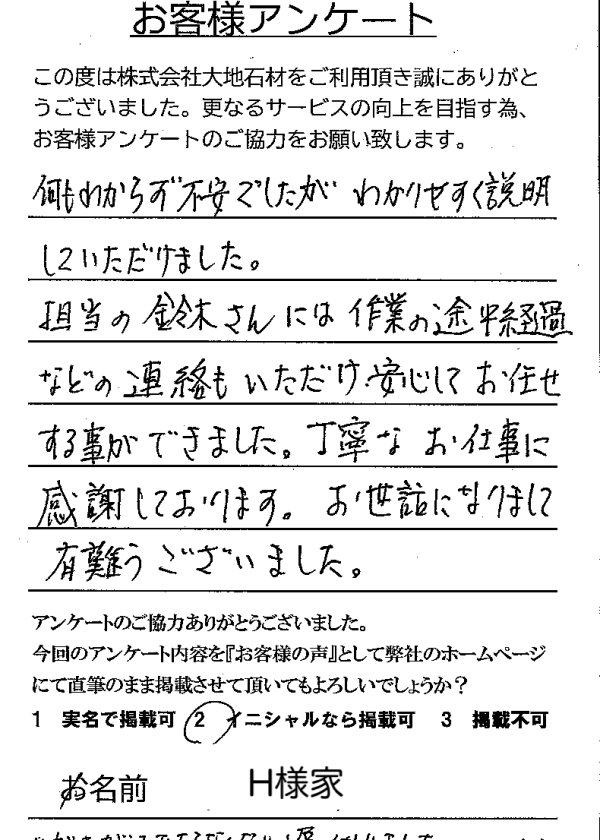 お客様アンケート
この度は株式会社大地石材をご利用頂き誠にありがと
うございました。更なるサービスの向上を目指す為、
お客様アンケートのご協力をお願い致します。
何もわからず不安でしたが わかりやすく説明
していただけました。
担当の鈴木さんには作業の途中経過
などの連絡もいただけ安心してお任せ
する事ができました。丁寧なお仕事に
感謝しております。お世話になりまして
有難うございました。
アンケートのご協力ありがとうございました。
今回のアンケート内容を『お客様の声』として弊社のホームページ
にて直筆のまま掲載させて頂いてもよろしいでしょうか？
1 実名で掲載可 2 イニシャルなら掲載可 3 掲載不可
お名前 H様家